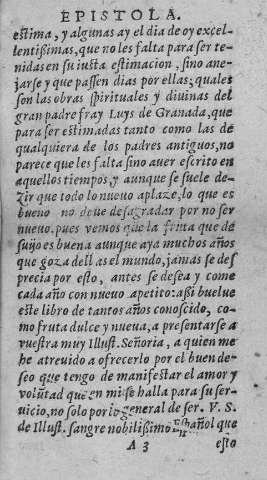 EPISTOLA.
estima, y algunas ay el dia de oy excel-
lentißimas, que no les falta para ser te-
nidas en su iusta estimacion, sino ane-
jarse y que passen dias por ellas; quales
son las obras spirituales y diuinas del
gran padre fray Luys de Granada, que
para ser estimadas tanto como las de
qualquiera de los padres antiguos, no
parece que les falta sino auer escrito en
aquellos tiempos, y aunque se suele de-
zir que todo lo nueuo aplaze, lo que es
bueno no deue desagradar por no ser
nueuo. pues vemos que la fruta que de
suijo es buena aunque aya muchos años
que goza dellas el mundo, jamas se des
precia por esto, antes se desea y come
cada año con nueuo apetito: aßi buelue
este libro de tantos años conoscido, co-
mo fruta dulce y nueua, a presentarse a
vuestra muy Illust. Señoria, a quien me
he atreuido a ofrecerlo por el buen de-
seo que tengo de manifestar el amor y
volũtad que en mi se halla para su ser-
uicio, no solo por lo general de ser. V. S.
de Illust. sangre nobilißimo Español que
A 3 esto